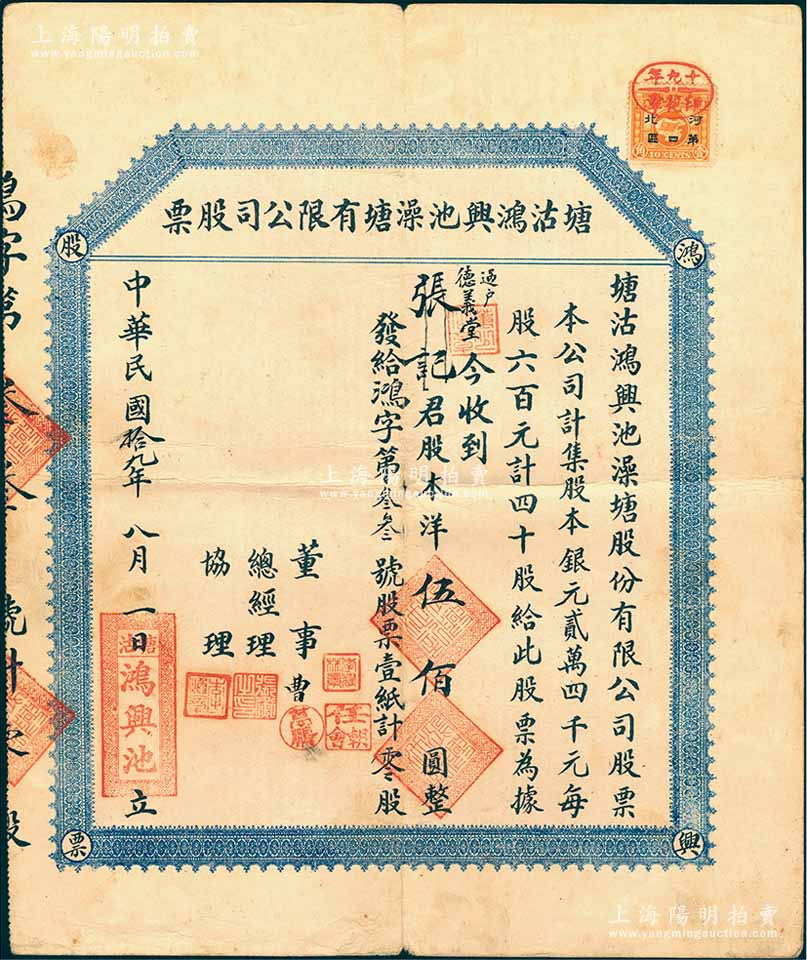 上海陽明拍賣
www.yangmingauction.com
十九年
河北
第口區
角
壹
10 CENTS
塘沽鴻興池澡塘有限公司股票
鴻
股
塘沽鴻興池澡塘股份有限公司股票
本公司計集股本銀元貳萬四千元每
股六百元計四十股給此股票為據
過户
德義堂今收到
張記君股本洋伍佰圓整
發給鴻字第叁叁號股票壹紙計零股
董事曹
總經理
協理
中華民國拾九年八月一日立
塘沽
鴻興池
鴻字第
號計
股
興
票
上海陽明拍賣
www.yangmingauction.com
上海陽明拍賣
www.yangmingauction.com